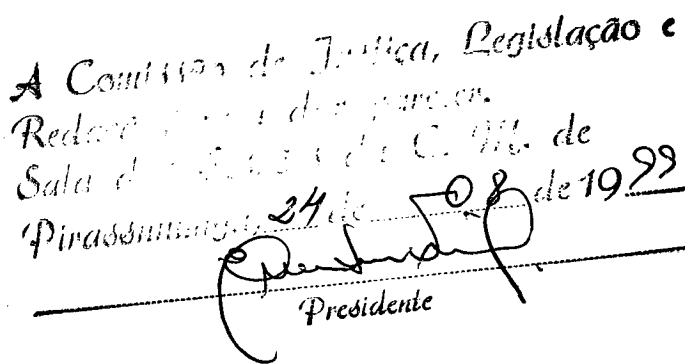 A Comissão de Justiça, Legislação e
Redação dar parecer.
Sala das Sessões da C. M. de
Pirassununga, 24 de 08 de 1999
Presidente